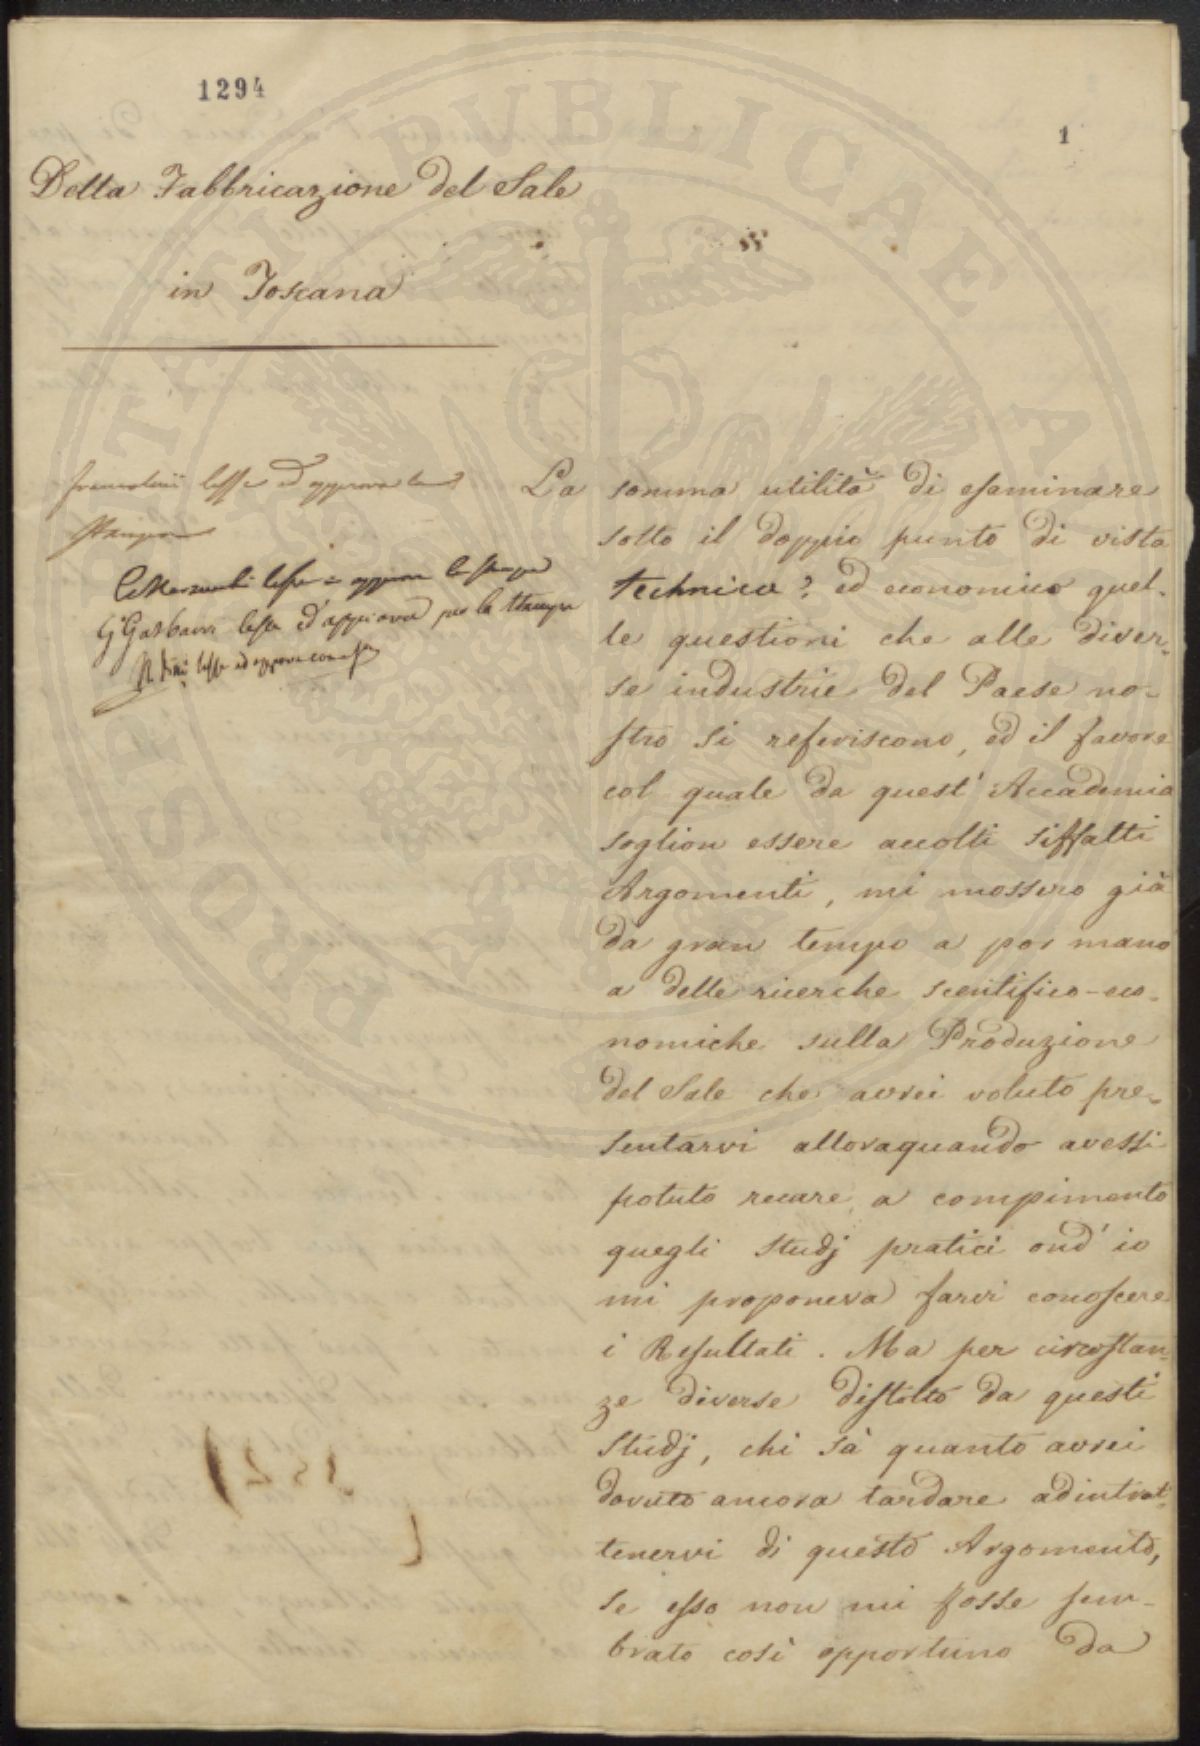 1294
1
Della Fabbricazione del Sale
in Toscana
lesse ed approva la
stampa
lesse e approva la stampa
lesse ed approva per la stampa
lesse ed approva come sopra
La somma utilità di esaminare
sotto il doppio punto di vista
technico ? ed economico quel-
le questioni che alle diver-
se industrie del Paese no-
stro si referiscono, ed il favore
col quale da quest' Accademia
soglion essere accolti siffatti
Argomenti, mi mossero già
da gran tempo a por mano
a delle ricerche scentifico-eco-
nomiche sulla Produzione
del Sale che avrei voluto pre-
sentarvi alloraquando avessi
potuto recare a compimento
quegli Studj pratici ond' io
mi proponeva farvi conoscere
i Resultati. Ma per circostan-
ze diverse distolto da questi
Studj, chi sà quanto avrei
dovuto ancora tardare ad intrat-
tenervi di questo Argomento,
se esso non mi fosse sem-
brato così opportuno da
PROSPERITATI PUBLICAE